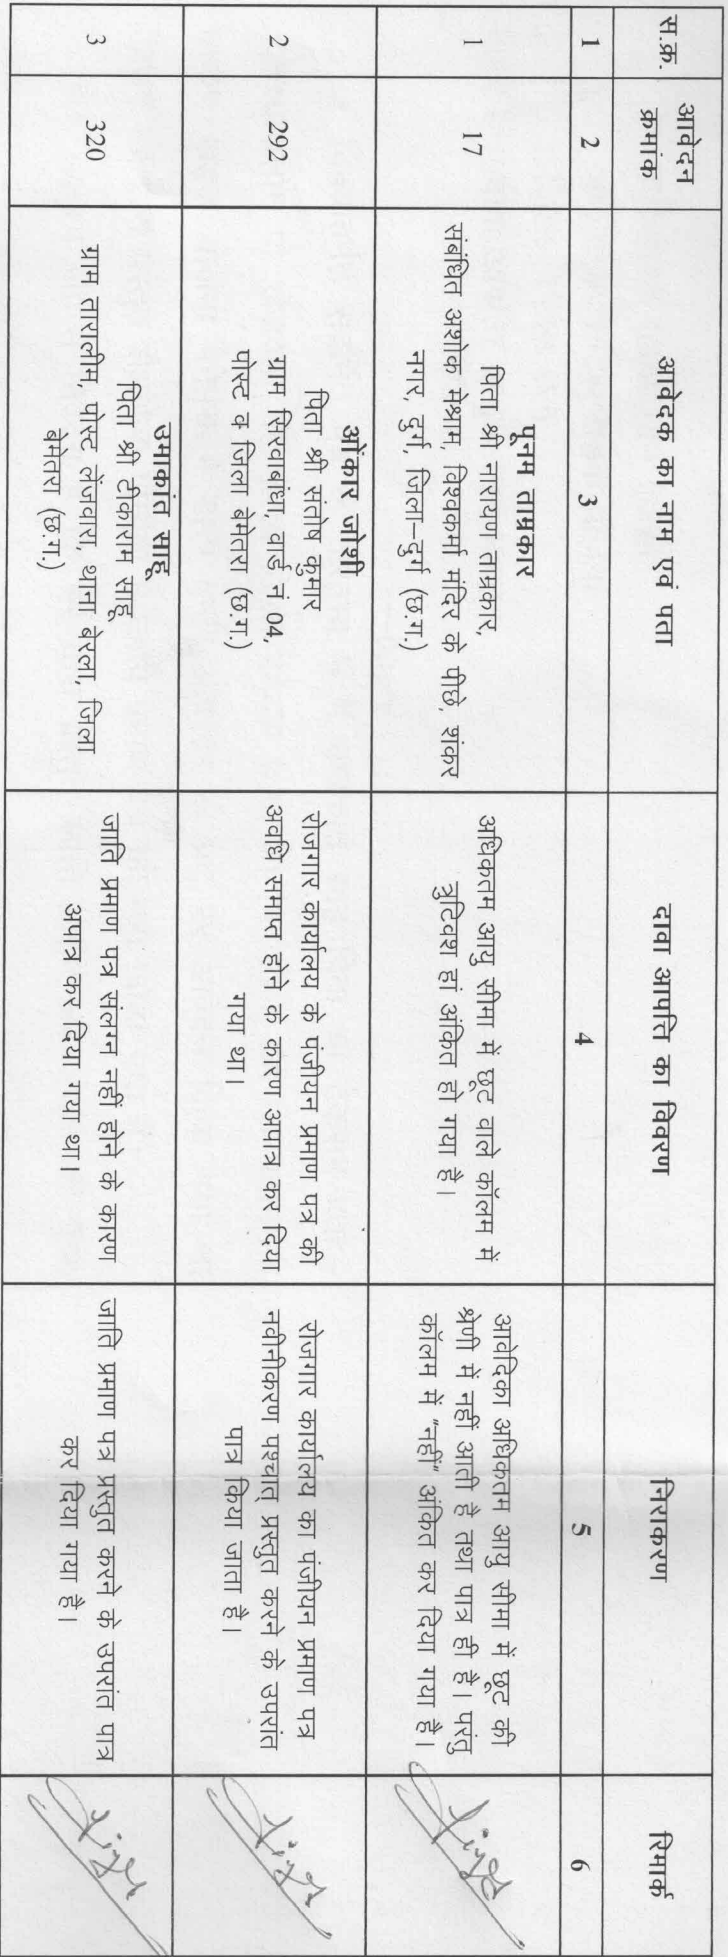 स.क्र.
आवेदन
क्रमांक
आवेदक का नाम एवं पता
दावा आपत्ति का विवरण
निराकरण
रिमार्क
1
2
3
4
5
6
1
17
पूनम ताम्रकार
पिता श्री नारायण ताम्रकार,
संबंधित अशोक मेश्राम, विश्वकर्मा मंदिर के पीछे, शंकर
नगर, दुर्ग, जिला–दुर्ग (छ.ग.)
अधिकतम आयु सीमा में छूट वाले कॉलम में
त्रुटिवश हां अंकित हो गया है।
आवेदिका अधिकतम आयु सीमा में छूट की
श्रेणी में नहीं आती है तथा पात्र ही है। परंतु
कॉलम में "नहीं" अंकित कर दिया गया है।
2
292
ओंकार जोशी
पिता श्री संतोष कुमार
ग्राम सिरवाबांधा, वार्ड नं 04,
पोस्ट व जिला बेमेतरा (छ.ग.)
रोजगार कार्यालय के पंजीयन प्रमाण पत्र की
अवधि समाप्त होने के कारण अपात्र कर दिया
गया था।
रोजगार कार्यालय का पंजीयन प्रमाण पत्र
नवीनीकरण पश्चात् प्रस्तुत करने के उपरांत
पात्र किया जाता है।
3
320
उमाकांत साहू
पिता श्री टीकाराम साहू
ग्राम तारालीम, पोस्ट लेंजवारा, थाना बेरला, जिला
बेमेतरा (छ.ग.)
जाति प्रमाण पत्र संलग्न नहीं होने के कारण
अपात्र कर दिया गया था।
जाति प्रमाण पत्र प्रस्तुत करने के उपरांत पात्र
कर दिया गया है।